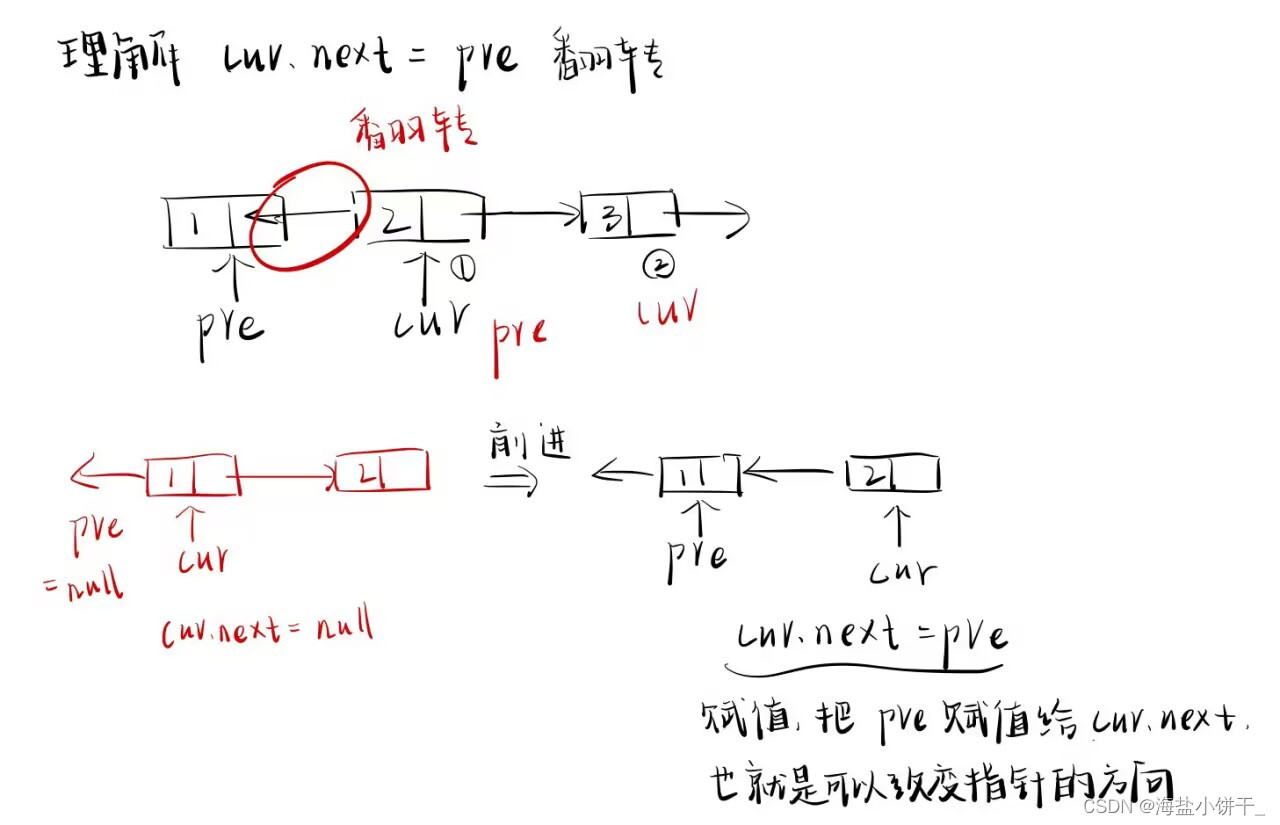 理解 cur.next = pre 翻转
翻转
1 2 3
① ②
pre cur pre cur
前进
1 2 1 2
pre cur pre cur
=null
cur.next = null
cur.next = pre
赋值,把 pre 赋值给 cur.next.
也就是可以改变指针的方向
CSDN @海盐小饼干_